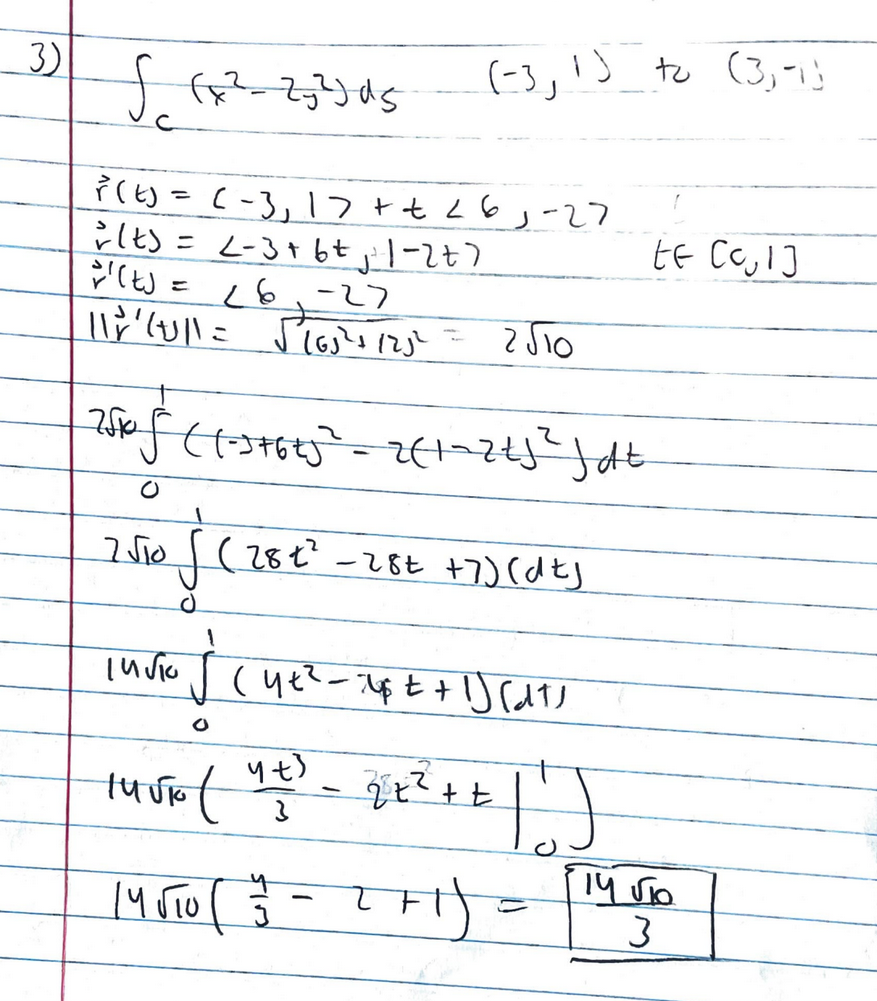 3) ∫_C (x² - 2y²) ds (-3, 1) to (3, -1)
r⃗(t) = <-3, 1> + t <6, -2>
r⃗(t) = <-3 + 6t, 1 - 2t> t ∈ [0, 1]
r⃗'(t) = <6, -2>
||r⃗'(t)|| = √((6)² + (2)²) = 2√10
2√10 ∫₀¹ ((-3+6t)² - 2(1-2t)²) dt
2√10 ∫₀¹ (28t² - 28t + 7)(dt)
14√10 ∫₀¹ (4t² - 4t + 1)(dt)
14√10 (4t³/3 - 2t² + t |₀¹)
14√10 (4/3 - 2 + 1) = 14√10/3